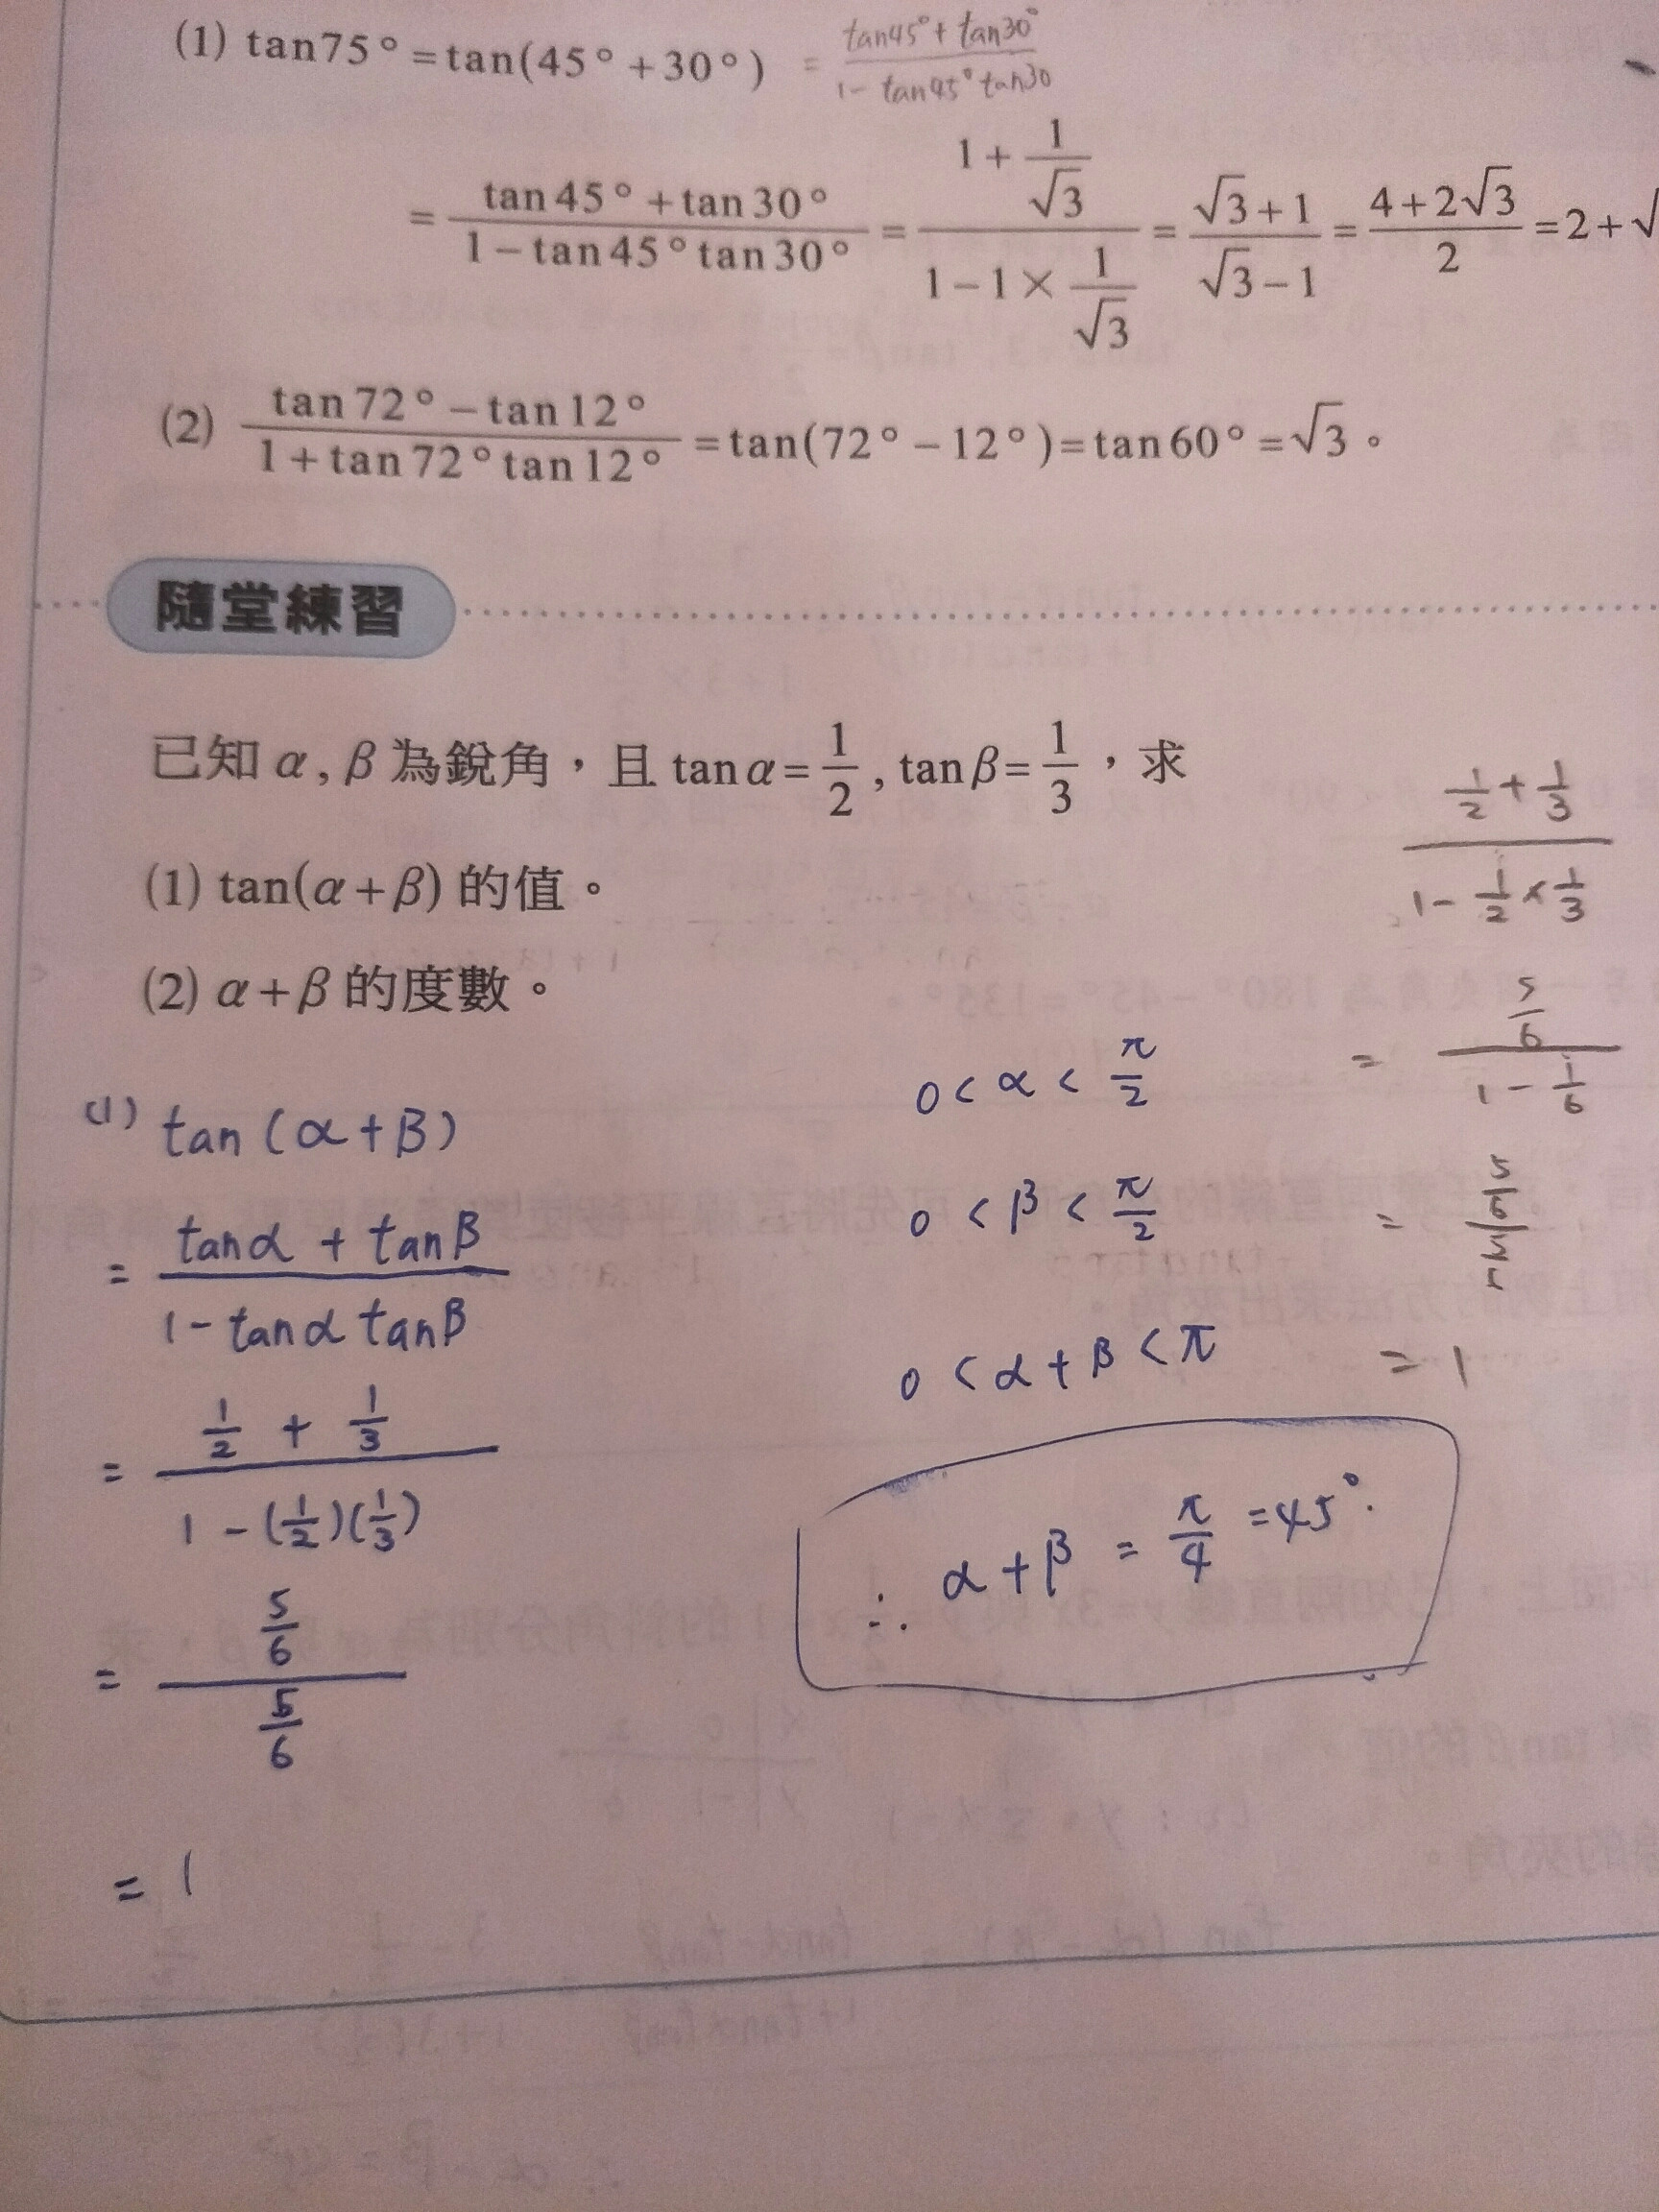 (1) tan75°=tan(45°+30°) = (tan45°+tan30°)/(1-tan45°tan30)
= (tan45°+tan30°)/(1-tan45°tan30°) = (1+1/√3)/(1-1×1/√3) = (√3+1)/(√3-1) = (4+2√3)/2 = 2+√
(2) (tan72°-tan12°)/(1+tan72°tan12°) = tan(72°-12°)=tan60°=√3。
隨堂練習
已知 α, β 為銳角,且 tanα=1/2, tanβ=1/3,求
(1) tan(α+β) 的值。
(2) α+β 的度數。
(1) tan(α+β)
= (tanα + tanβ)/(1-tanα tanβ)
= (1/2 + 1/3)/(1-(1/2)(1/3))
= (5/6)/(5/6)
= 1
0<α<π/2
0<β<π/2
0<α+β<π
∴ α+β = π/4 =45°.
(1/2+1/3)/(1-1/2×1/3)
= (5/6)/(1-1/6)
=
= 1